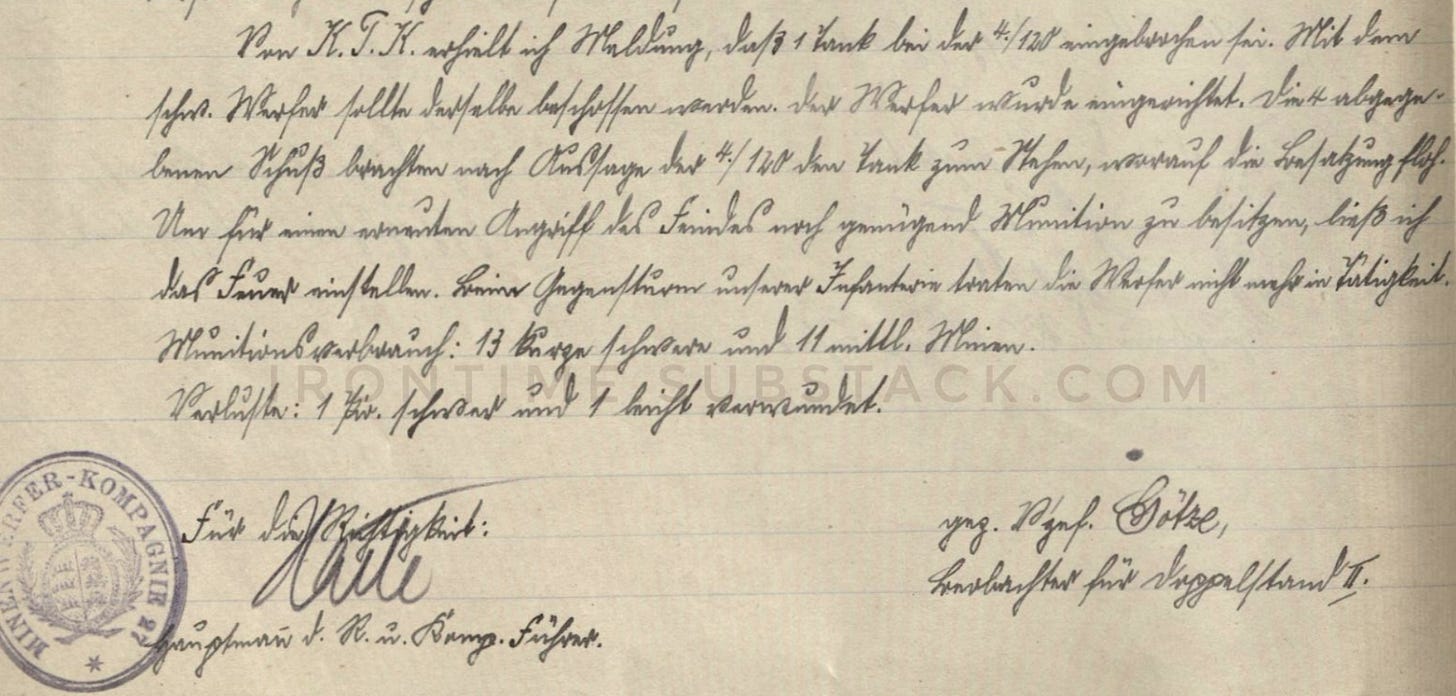 Von K.T.K. erhielt ich Meldung, daß 1 Tank bei der 4./120 eingebrochen sei. Mit dem
schw. Werfer sollte derselbe beschossen werden. Der Werfer wurde eingerichtet. Die 4 abgege-
benen Schuß brachten nach Aussage der 4./120 den Tank zum Stehen, worauf die Besatzung floh.
Um für einen erneuten Angriff des Feindes noch genügend Munition zu besitzen, ließ ich
das Feuer einstellen. Beim Gegensturm unserer Infanterie traten die Werfer nicht mehr in Tätigkeit.
Munitionsverbrauch: 13 kurze schwere und 11 mittl. Minen.
IRONTIME.SUBSTACK.COM
Verluste: 1 Pio. schwer und 1 leicht verwundet.
MINENWERFER-KOMPAGNIE 27
Für die Richtigkeit:
gez. Vzef. Götze,
Beobachter für Doppelstand II.
Hauptmann d. R. u. Komp. Führer.